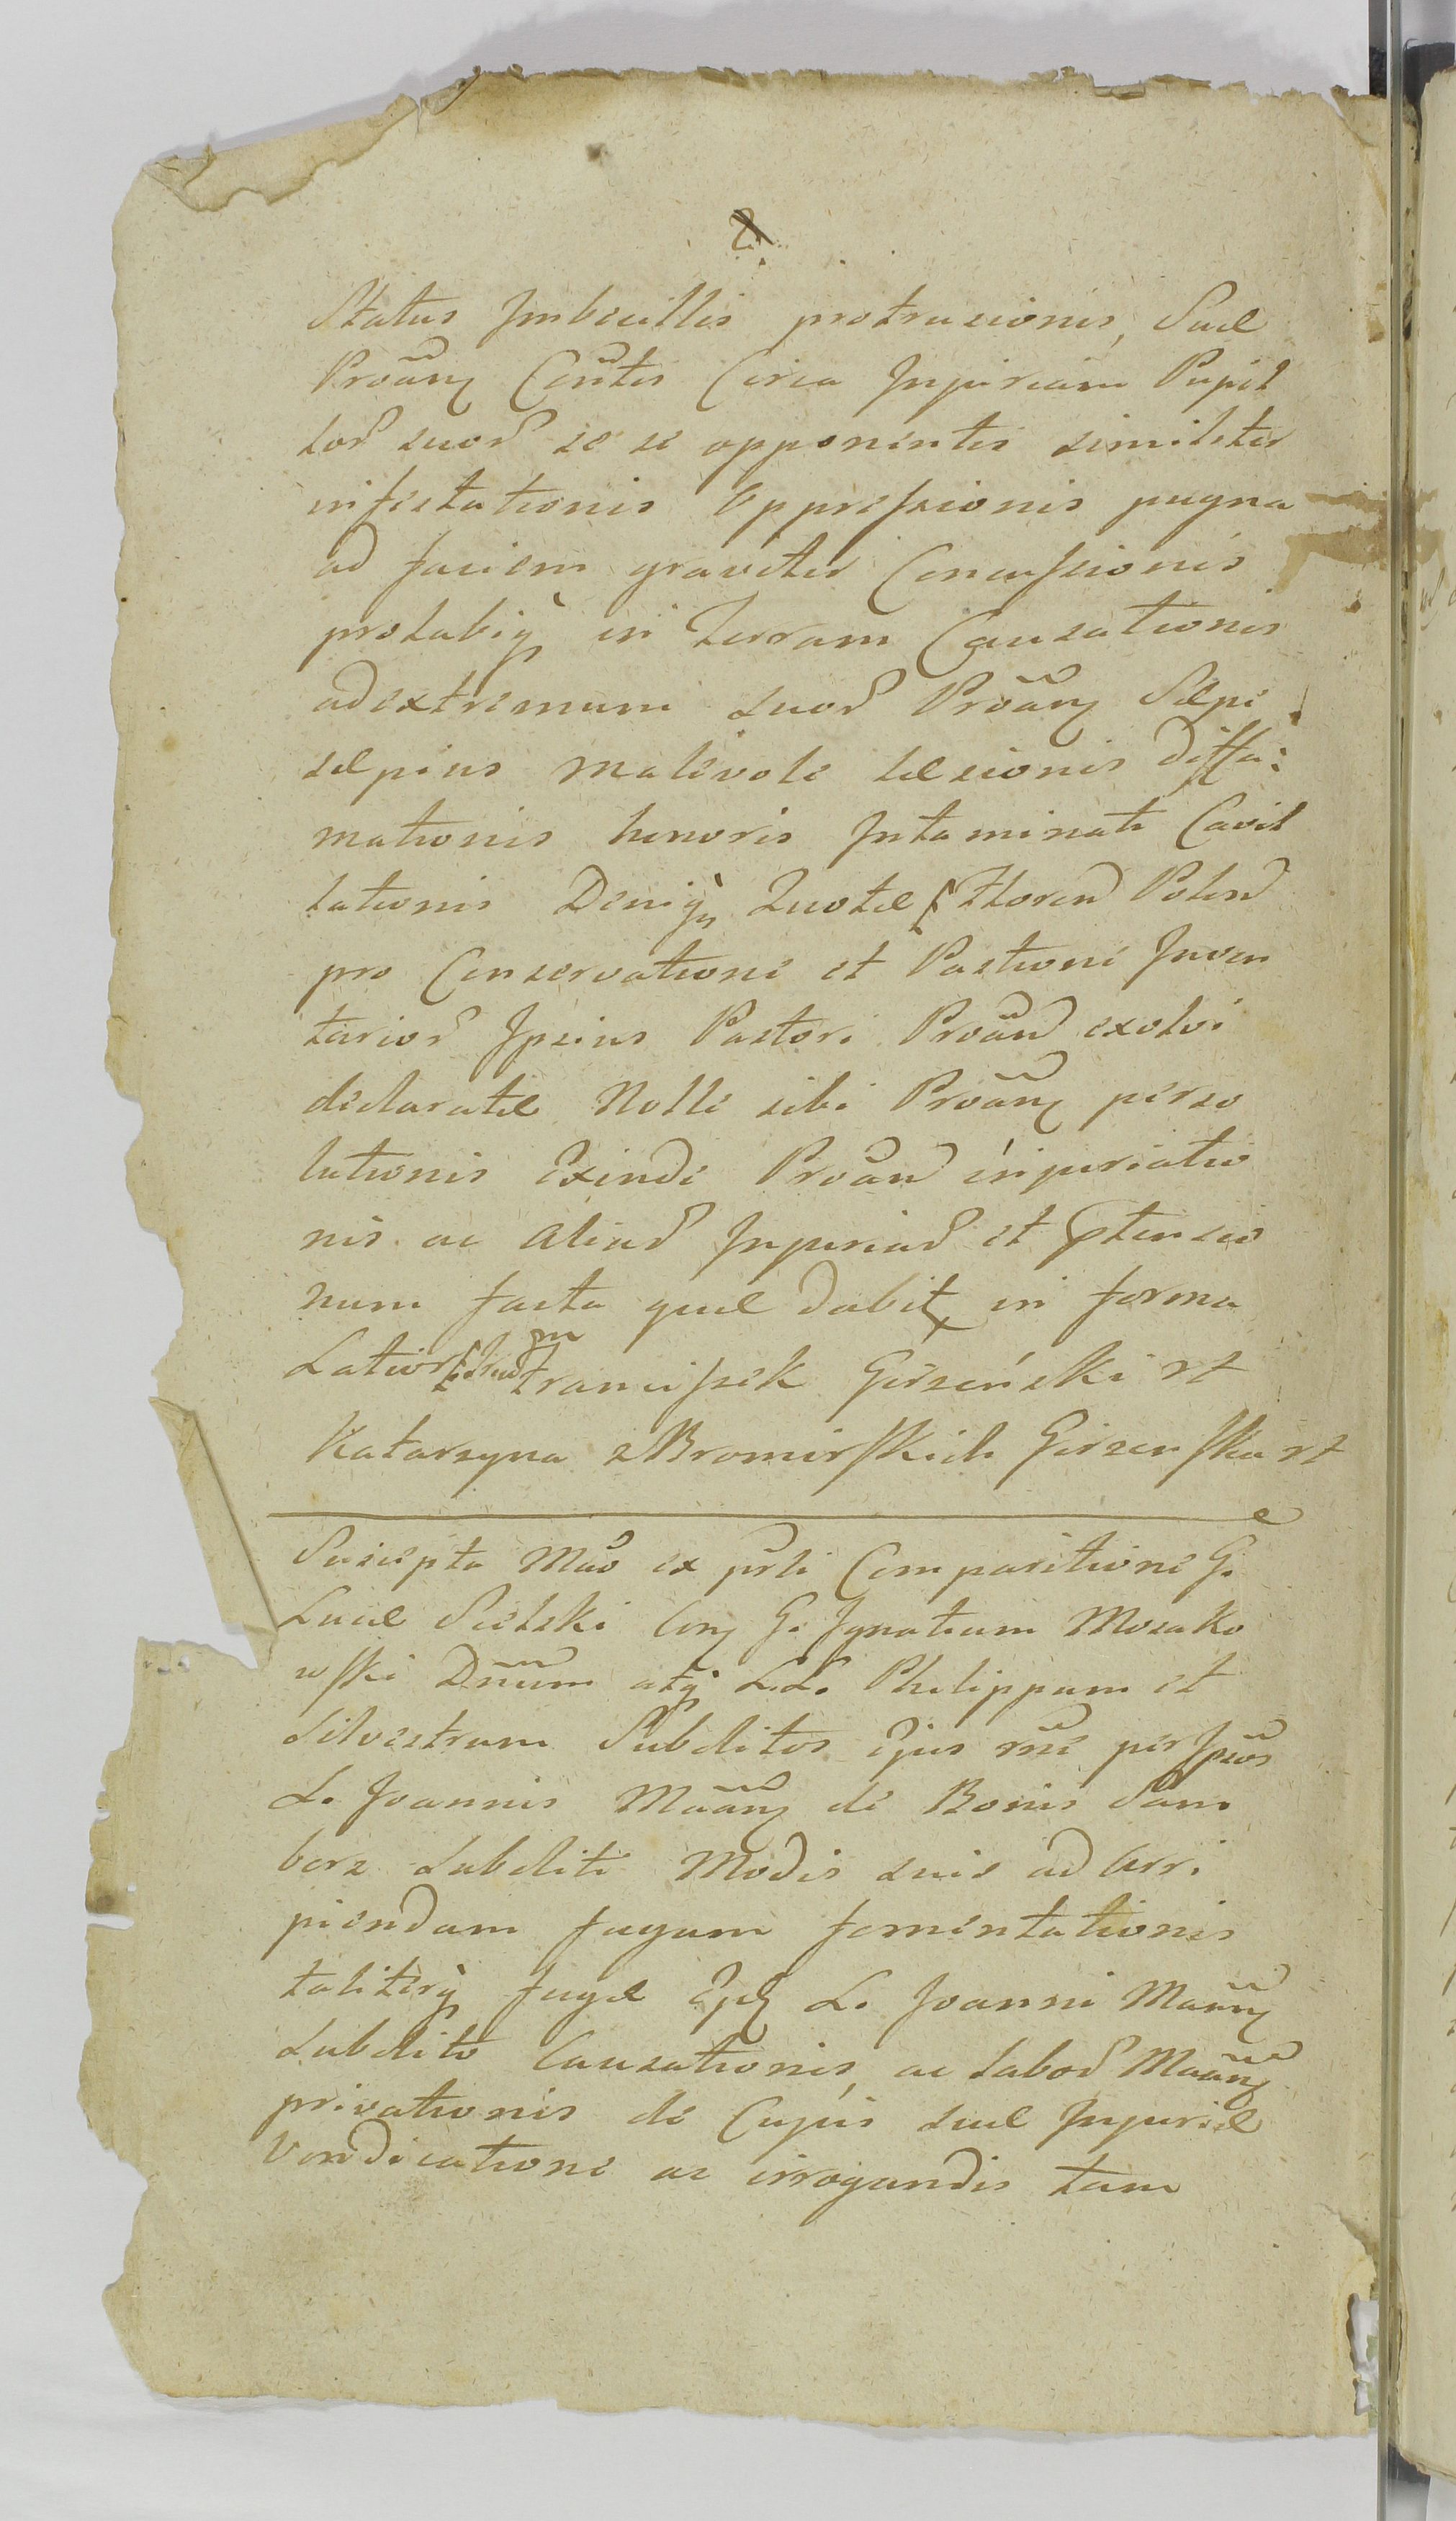 2
Status Imbecillis protrusionis, Suæ
Proãnÿ Cõntis Circa Injuriam Pupil
lor̃ suor̃ se se opponentis similiter
infestationis oppressionis pugna
ad faciem graviter Concussionis
prolabiq̃ in terram Causationis
ad extremum suor̃ Proãnÿ Sæpe
sæpius malevole læsionis diffa:
mationis honoris Intaminati Cavil
lationis Deniq̃ Quotæ Floren̄ Polon̄
pro Conservatione et Pastione Inven
tarior̃ Ipsius Pastori Proãn̄ exolvi
declaratæ Nolle sibi Proãnÿ perso
lutionis Exinde Proãn̄ injuriatio
nis ac aliar̃ Injuriar̃ et
num facta quæ dabit in forma
Latiori Franciszek Girzeński rt
Katarzyna z Bromirskich Girzenska rt
Suscepta Mão ex prł̃i Comparitione G.
Lucæ Sielski G. Ignatium Mosako
wski Dn̄um atq̃ L.L. Philippum et
Silvestrum Subditos Ejus rñe per Ipsos
L. Joannis Mãanÿ de Bonis Sam
borz Subditi Modis suis ad Arri
piendam fugam fomentationis
taliterq̃ fugæ L. Joanni Mãanÿ
Subdito Causationis, ac labor̃ Mãanÿ
privationis de Cujus suæ Injuriæ
Vendicatione ac irrogandis tam